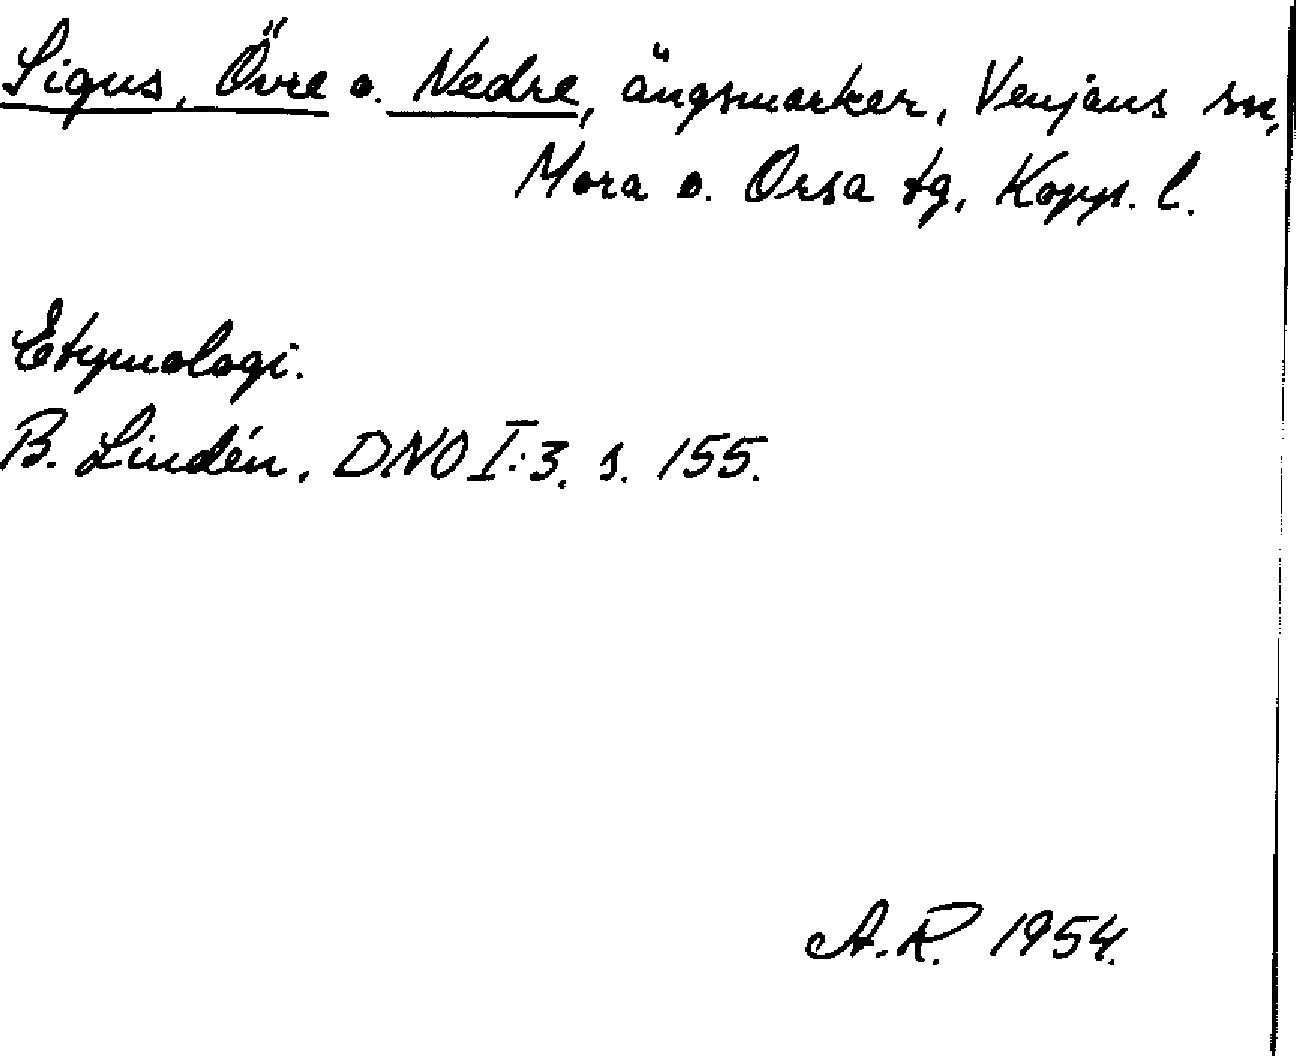 Siqus, Övre o. Nedre, ängsmarker, Venjans sn,
Mora o. Orsa tg, Kopp. l.
Etymologi.
B. Lindén, DNO I:3. s. 155.
A.R. 1954.